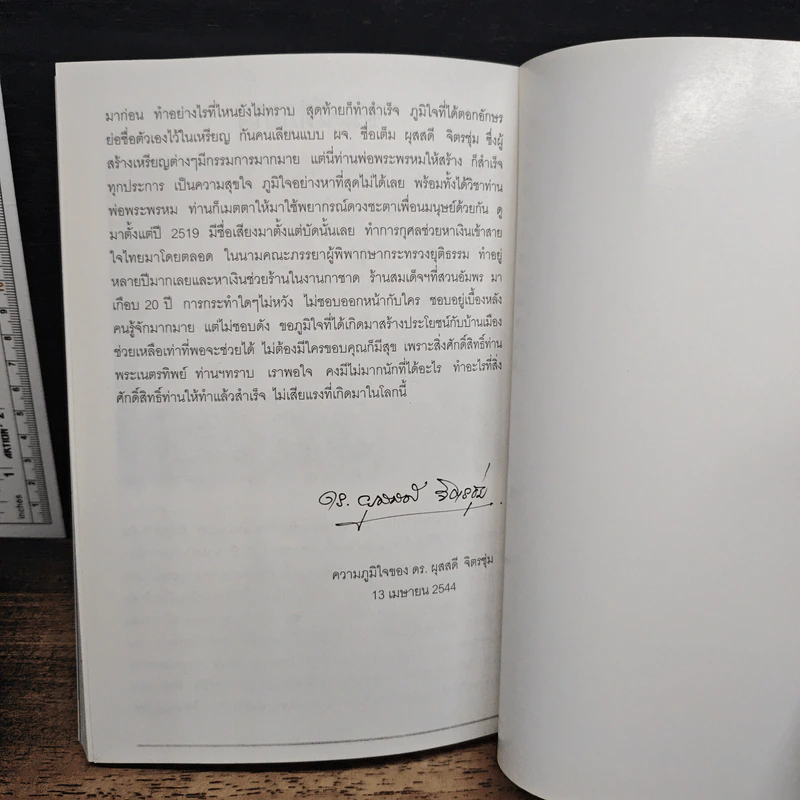 มาก่อน ทำอย่างไรที่ไหนยังไม่ทราบ สุดท้ายก็ทำสำเร็จ ภูมิใจที่ได้ตอกอักษร
ย่อชื่อตัวเองไว้ในเหรียญ กันคนเลียนแบบ ผจ. ชื่อเต็ม ผุสสดี จิตรชุ่ม ซึ่งผู้
สร้างเหรียญต่างๆมีกรรมการมากมาย แต่นี่ท่านพ่อพระพรหมให้สร้าง ก็สำเร็จ
ทุกประการ เป็นความสุขใจ ภูมิใจอย่างหาที่สุดไม่ได้เลย พร้อมทั้งได้วิชาท่าน
พ่อพระพรหม ท่านก็เมตตาให้มาใช้พยากรณ์ดวงชะตาเพื่อนมนุษย์ด้วยกัน ดู
มาตั้งแต่ปี 2519 มีชื่อเสียงมาตั้งแต่บัดนั้นเลย ทำการกุศลช่วยหาเงินเข้าสาย
ใจไทยมาโดยตลอด ในนามคณะภรรยาผู้พิพากษากระทรวงยุติธรรม ทำอยู่
หลายปีมากเลยและหาเงินช่วยร้านในงานกาชาด ร้านสมเด็จฯที่สวนอัมพร มา
เกือบ 20 ปี การกระทำใดๆไม่หวัง ไม่ชอบออกหน้ากับใคร ชอบอยู่เบื้องหลัง
คนรู้จักมากมาย แต่ไม่ชอบดัง ขอภูมิใจที่ได้เกิดมาสร้างประโยชน์กับบ้านเมือง
ช่วยเหลือเท่าที่พอจะช่วยได้ ไม่ต้องมีใครขอบคุณก็มีสุข เพราะสิ่งศักดิ์สิทธิ์ท่าน
พระเนตรทิพย์ ท่านฯทราบ เราพอใจ คงมีไม่มากนักที่ได้อะไร ทำอะไรที่สิ่ง
ศักดิ์สิทธิ์ท่านให้ทำแล้วสำเร็จ ไม่เสียแรงที่เกิดมาในโลกนี้
ดร. ผุสสดี จิตรชุ่ม
ความภูมิใจของ ดร. ผุสสดี จิตรชุ่ม
13 เมษายน 2544